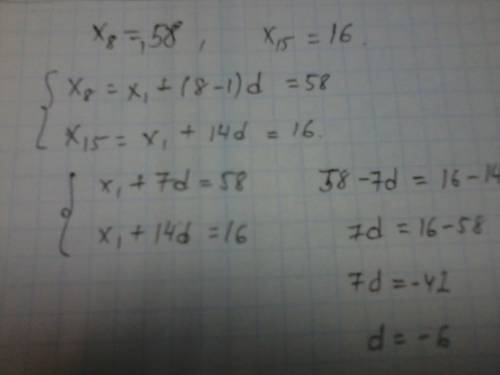 x₈ = 58, x₁₅ = 16.
{ x₈ = x₁ + (8-1)d = 58
x₁₅ = x₁ + 14d = 16.
{ x₁ + 7d = 58
x₁ + 14d = 16
58 - 7d = 16 - 14
7d = 16 - 58
7d = -42
d = -6